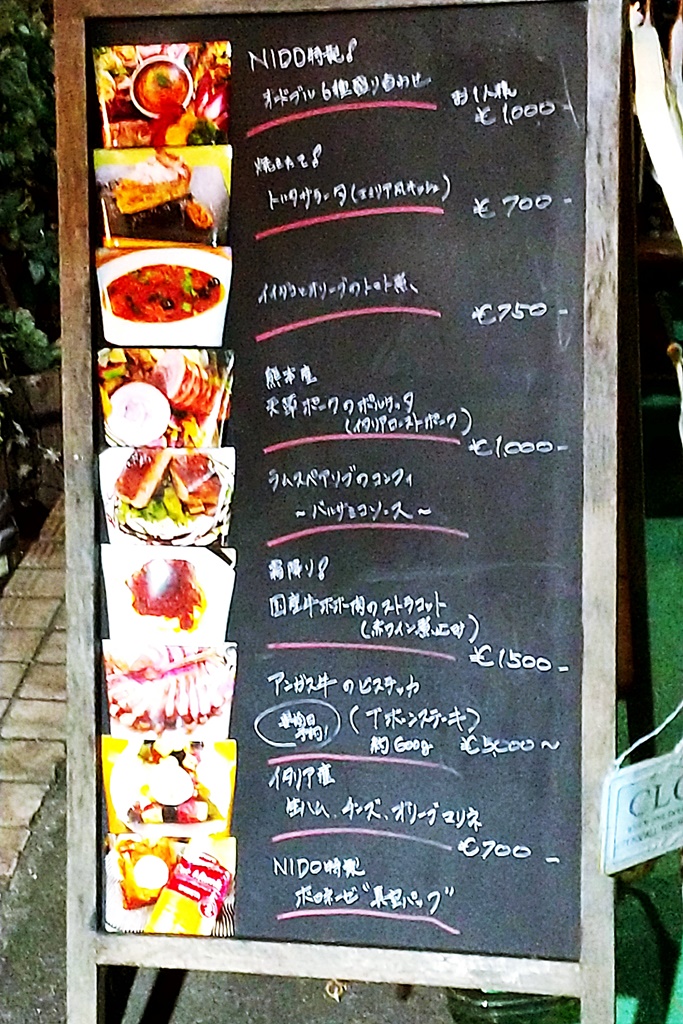 NIDO特製!
オードブル6種盛り合わせ お1人様
¥1,000-
焼きたて!
トルタサラータ(イタリア風キッシュ)
¥700-
イイダコとオリーブのトマト煮
¥750-
熊本産
天草ポークのポルケッタ
(イタリアローストポーク)
¥1,000-
ラムスペアリブのコンフィ
~バルサミコソース~
霜降り!
国産牛ホホ肉のストラコット
(赤ワイン煮込み)
¥1500-
アンガス牛のビステッカ
(Tボーンステーキ)
予約!
約600g ¥5,000~
イタリア産
生ハム、チーズ、オリーブマリネ
¥700-
NIDO特製
ボロネーゼ"真空パック"
CLO